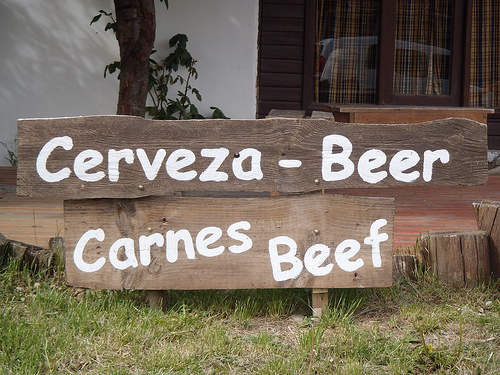 Cerveza - Beer
Carnes Beef